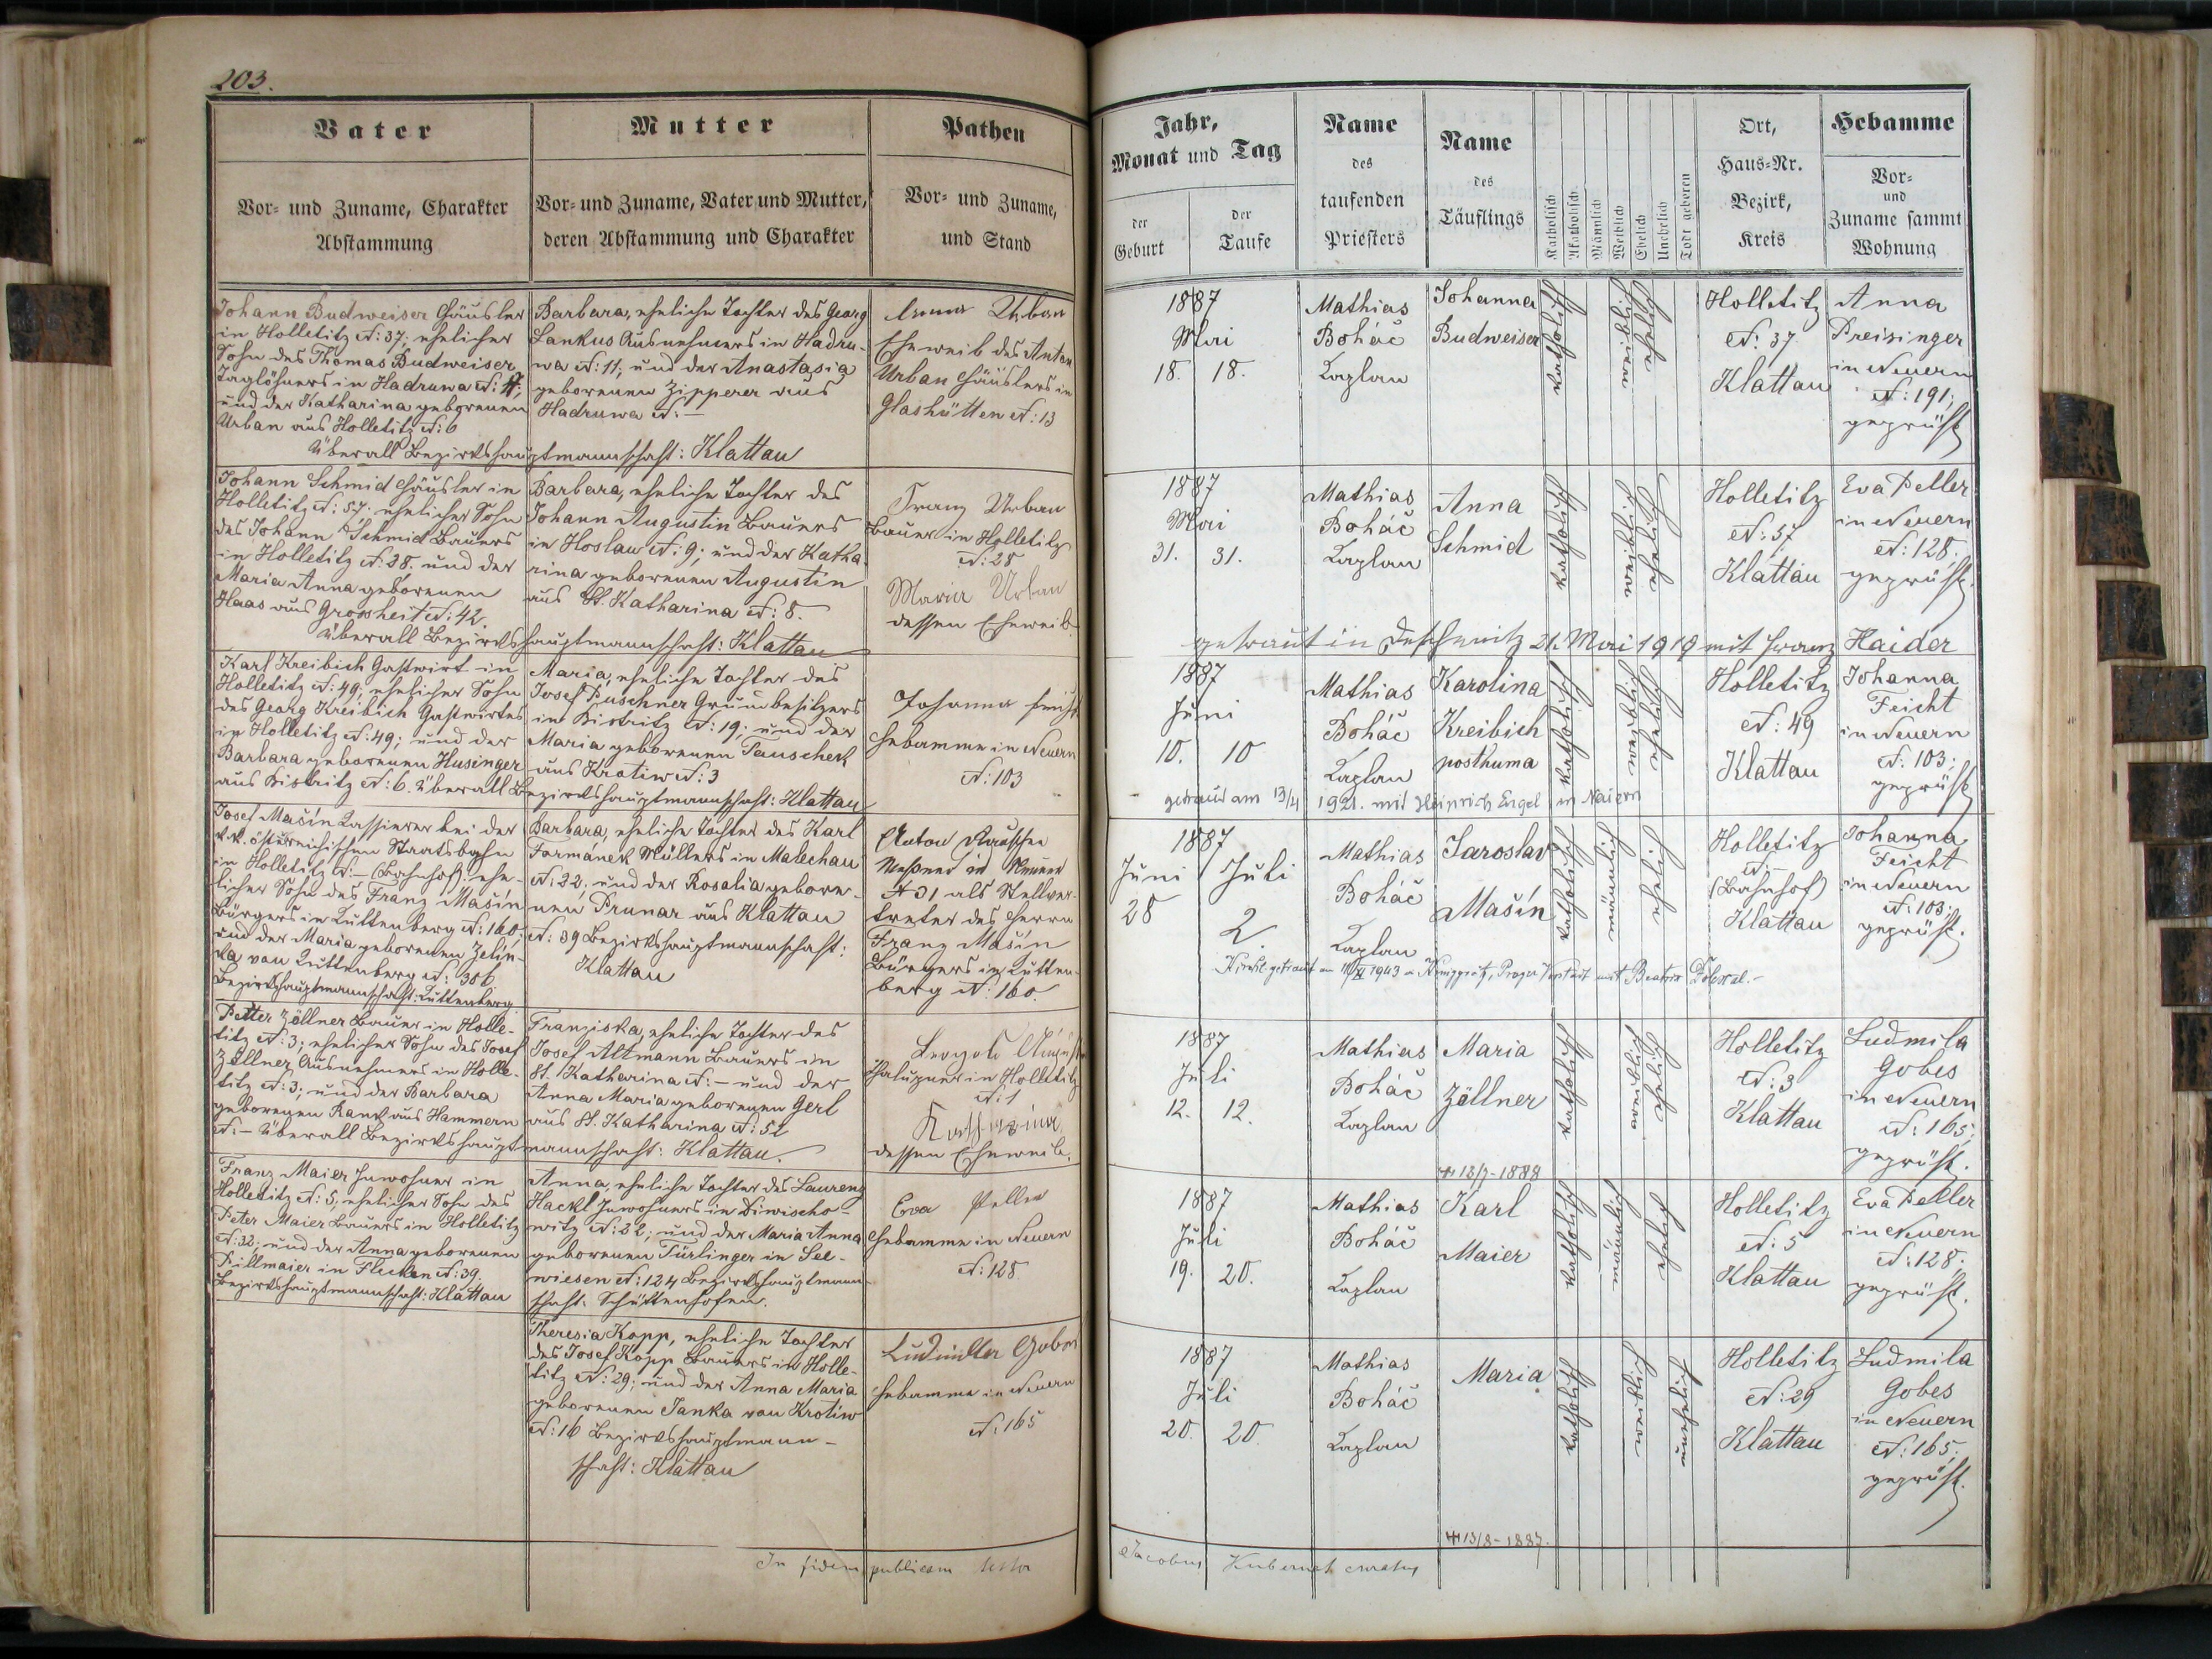 203.
Vater
Vor- und Zuname, Charakter
Abstammung
Mutter
Vor- und Zuname, Vater und Mutter,
deren Abstammung und Charakter
Pathen
Vor- und Zuname,
und Stand
Johann Budweiser Häusler
in Holletitz N: 37; ehelicher
Sohn des Thomas Budweiser
Taglöhners in Hadruwa N:
und der Katharina geborenen
Urban aus Holletitz N: 6
Barbara, eheliche Tochter des Georg
Lankus Ausnehmers in Hadru-
wa N: 11; und der Anastasia
geborenen Zipperer aus
Hadruwa N: —
Überall Bezirkshauptmannschaft: Klattau
Anna Urban
Eheweib des Anton
Urban Häuslers in
Glashütten N: 13
Johann Schmid Häusler in
Holletitz N: 57; ehelicher Sohn
des Johann Schmid Bauers
in Holletitz N: 38. und der
Maria Anna geborenen
Haas aus Grossheit N: 42.
Barbara, eheliche Tochter des
Johann Augustin Bauers
in Hoslau N: 9; und der Katha-
rina geborenen Augustin
aus St. Katharina N: 8.
überall Bezirkshauptmannschaft: Klattau
Franz Urban
Bauer in Holletitz
N: 28
Maria Urban
dessen Eheweib
Karl Kreibich Gastwirt in
Holletitz N: 49; ehelicher Sohn
des Georg Kreibich Gastwirtes
in Holletitz N: 49; und der
Barbara geborenen Husinger
aus Bistritz N: 6. überall Bezirkshauptmannschaft: Klattau
Maria, eheliche Tochter des
Josef Puschner Grundbesitzers
in Bistritz N: 19; und der
Maria geborenen Pauschek
aus Krotiw N: 3
Johanna Feicht
Hebamme in Neuern
N: 103
Josef Mašín Kassierer bei der
k. k. österreichischen Staatsbahn
in Holletitz N: — (Bahnhof); ehe-
licher Sohn des Franz Mašín
Bürgers in Kuttenberg N: 160;
und der Maria geborenen Zelin-
ka von Kuttenberg N: 306
Bezirkshauptmannschaft: Kuttenberg
Barbara, eheliche Tochter des Karl
Formánek Müllers in Malechau
N: 22; und der Rosalia gebore-
nen Prunar aus Klattau
N: 39 Bezirkshauptmannschaft:
Klattau
Anton
Meßner in Neuern
N 31 als Stellver-
treter des Herrn
Franz Mašín
Bürgers in Kutten-
berg N: 160.
Petter Zöllner Bauer in Holle-
titz N: 3; ehelicher Sohn des Josef
Zöllner Ausnehmers in Holle-
titz N: 3; und der Barbara
geborenen Rank aus Hammern
N: — Überall Bezirkshauptmannschaft: Klattau.
Franziska, eheliche Tochter des
Josef Altmann Bauers in
St. Katharina N: — und der
Anna Maria geborenen Gerl
aus St. Katharina N: 52
Leopold August
Chalupner in Holletitz
N: 1
Katharina
dessen Eheweib.
Franz Maier Inwohner in
Holletitz N: 5; ehelicher Sohn des
Peter Maier Bauers in Holletitz
N: 32; und der Anna geborenen
Pillmaier in Flecken N: 39.
Bezirkshauptmannschaft: Klattau
Anna, eheliche Tochter des Laurenz
Hackl Inwohners in Diwischo-
witz N: 22; und der Maria Anna
geborenen Türlinger in See-
wiesen N: 124 Bezirkshauptmann-
schaft: Schüttenhofen.
Eva Peller
Hebamme in Neuern
N: 128
Theresia Kopp, eheliche Tochter
des Josef Kopp Bauers in Holle-
titz N: 29; und der Anna Maria
geborenen Janka von Krotiw
N: 16 Bezirkshauptmann-
schaft: Klattau
Ludmilla Gobes
Hebamme in Neuern
N: 165
In fidem publicam testor
Jahr,
Monat und Tag
der
Geburt
der
Taufe
Name
des
taufenden
Priesters
Name
des
Täuflings
Katholisch
Akatholisch
Männlich
Weiblich
Ehelich
Unehelich
Todt geboren
Ort,
Haus-Nr.
Bezirk,
Kreis
Hebamme
Vor-
und
Zuname sammt
Wohnung
1887
Mai
18. 18.
Mathias
Boháč
Kaplan
Johanna
Budweiser
katholisch
weiblich
ehelich
Holletitz
N: 37
Klattau
Anna
Preisinger
in Neuern
N: 191;
geprüft
1887
Mai
31. 31.
Mathias
Boháč
Kaplan
Anna
Schmid
katholisch
weiblich
ehelich
Holletitz
N: 57
Klattau
Eva Peller
in Neuern
N: 128.
geprüft.
getraut in Deschenitz 21. Mai 1919 mit Franz Haider
1887
Juni
10. 10
Mathias
Boháč
Kaplan
Karolina
Kreibich
posthuma
katholisch
weiblich
ehelich
Holletitz
N: 49
Klattau
Johanna
Feicht
in Neuern
N: 103;
geprüft
getraut am 13/4 1921. mit Heinrich Engel in Naiern
1887
Juni Juli
28 2.
Mathias
Boháč
Kaplan
Jaroslav
Mašín
katholisch
männlich
ehelich
Holletitz
N: —
(Bahnhof)
Klattau
Johanna
Feicht
in Neuern
N: 103;
geprüft.
Kirchl. getraut am 11/XI 1943 in Königgrätz, Prager Vorstadt mit Beatrix
1887
Juli
12. 12.
Mathias
Boháč
Kaplan
Maria
Zöllner
katholisch
weiblich
ehelich
Holletitz
N: 3
Klattau
Ludmila
Gobes
in Neuern
N: 165;
geprüft.
+ 13/7-1888
1887
Juli
19. 20.
Mathias
Boháč
Kaplan
Karl
Maier
katholisch
männlich
ehelich
Holletitz
N: 5
Klattau
Eva Peller
in Neuern
N: 128.
geprüft.
1887
Juli
20. 20.
Mathias
Boháč
Kaplan
Maria
katholisch
weiblich
unehelich
Holletitz
N: 29
Klattau
Ludmila
Gobes
in Neuern
N: 165;
geprüft.
+ 13/8-1887.
Jacobus Kubernat curatus